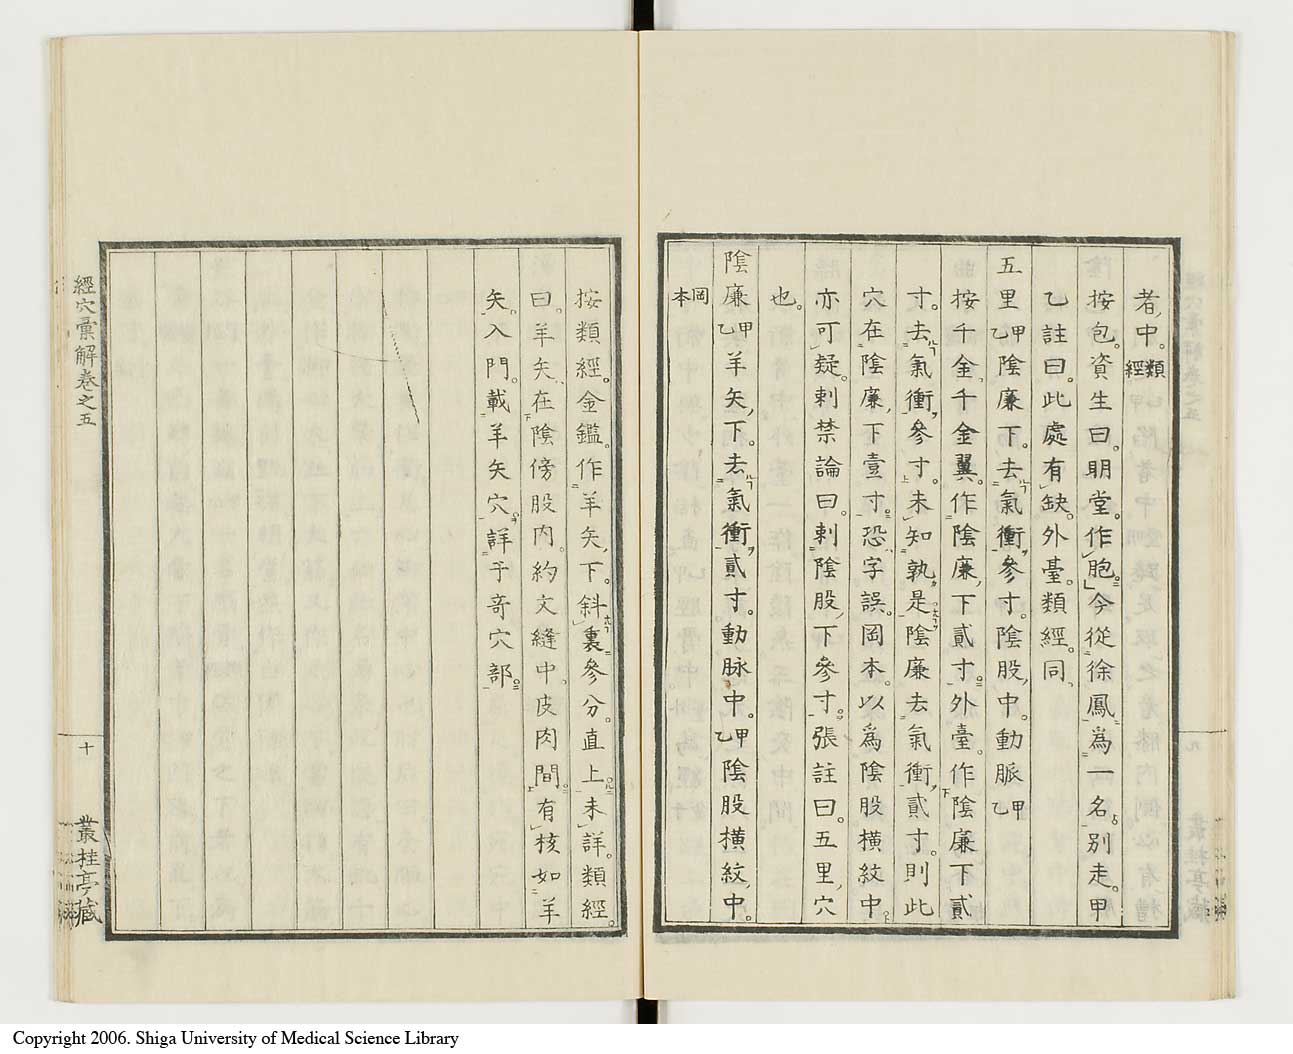 者中類經
按包資生曰明堂作胞今從徐鳳為一名別走甲
乙註曰此處有缺外臺類經同
五里甲乙陰廉下去氣衝參寸陰股中動脈甲乙
按千金千金翼作陰廉下貳寸外臺作陰廉下貳
寸去氣衝參寸未知孰是陰廉去氣衝貳寸則此
穴在陰廉下壹寸恐字誤岡本以為陰股橫紋中
亦可疑刺禁論曰刺陰股下參寸張註曰五里穴
也
陰廉甲乙羊矢下去氣衝貳寸動脉中甲乙陰股橫紋中
岡本
按類經金鑑作羊矢下斜裏參分直上未詳類經
曰羊矢在陰傍股內約文縫中皮肉間有核如羊
矢入門載羊矢穴詳于奇穴部
經穴彙解卷之五
十
叢桂亭藏
Copyright 2006. Shiga University of Medical Science Library